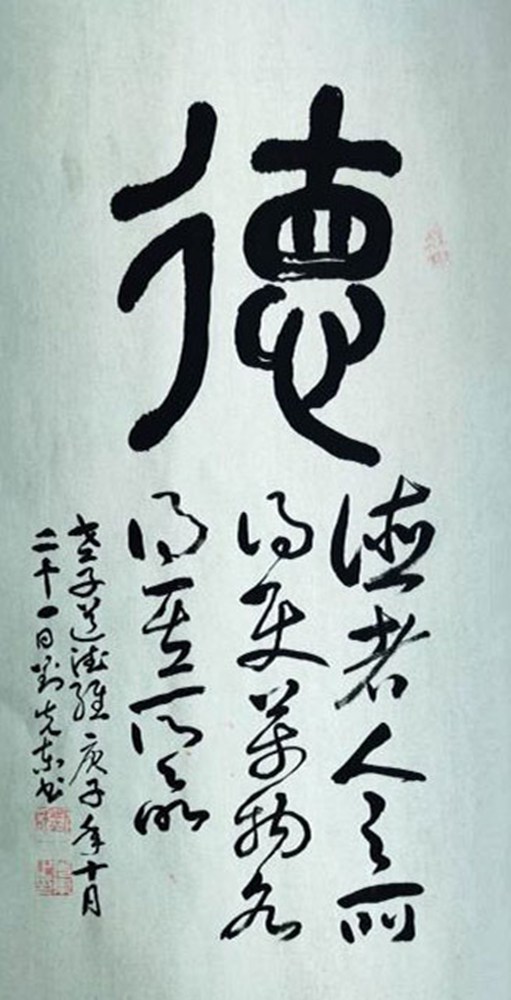 德
德者人之所
得使萬物各
得其所欲
老子道德經 庚子年十月
二十一日劉先东书